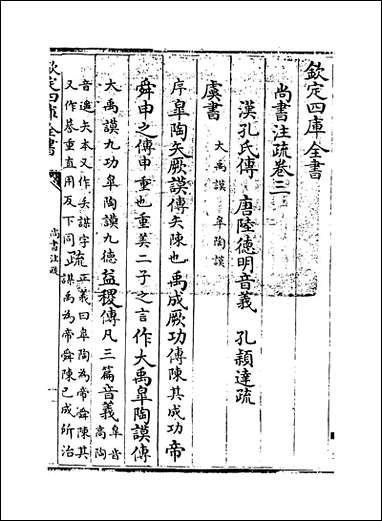 欽定四庫全書
尚書注疏卷三
漢孔氏傳　唐陸德明音義　孔穎達疏
虞書
大禹謨　皋陶謨
序皋陶矢厥謨傳矢陳也禹成厥功傳陳其成功帝
舜申之傳申重也重美二子之言作大禹皋陶謨傳
大禹謨九功皋陶謨九德益稷傳凡三篇音義皋音
高陶
音遙矢本又作𡗗謀字
又作暮重直用反下同疏正義曰皋陶為帝舜陳其
謀禹為帝舜陳已成所治
欽定四庫全書
尚書注疏